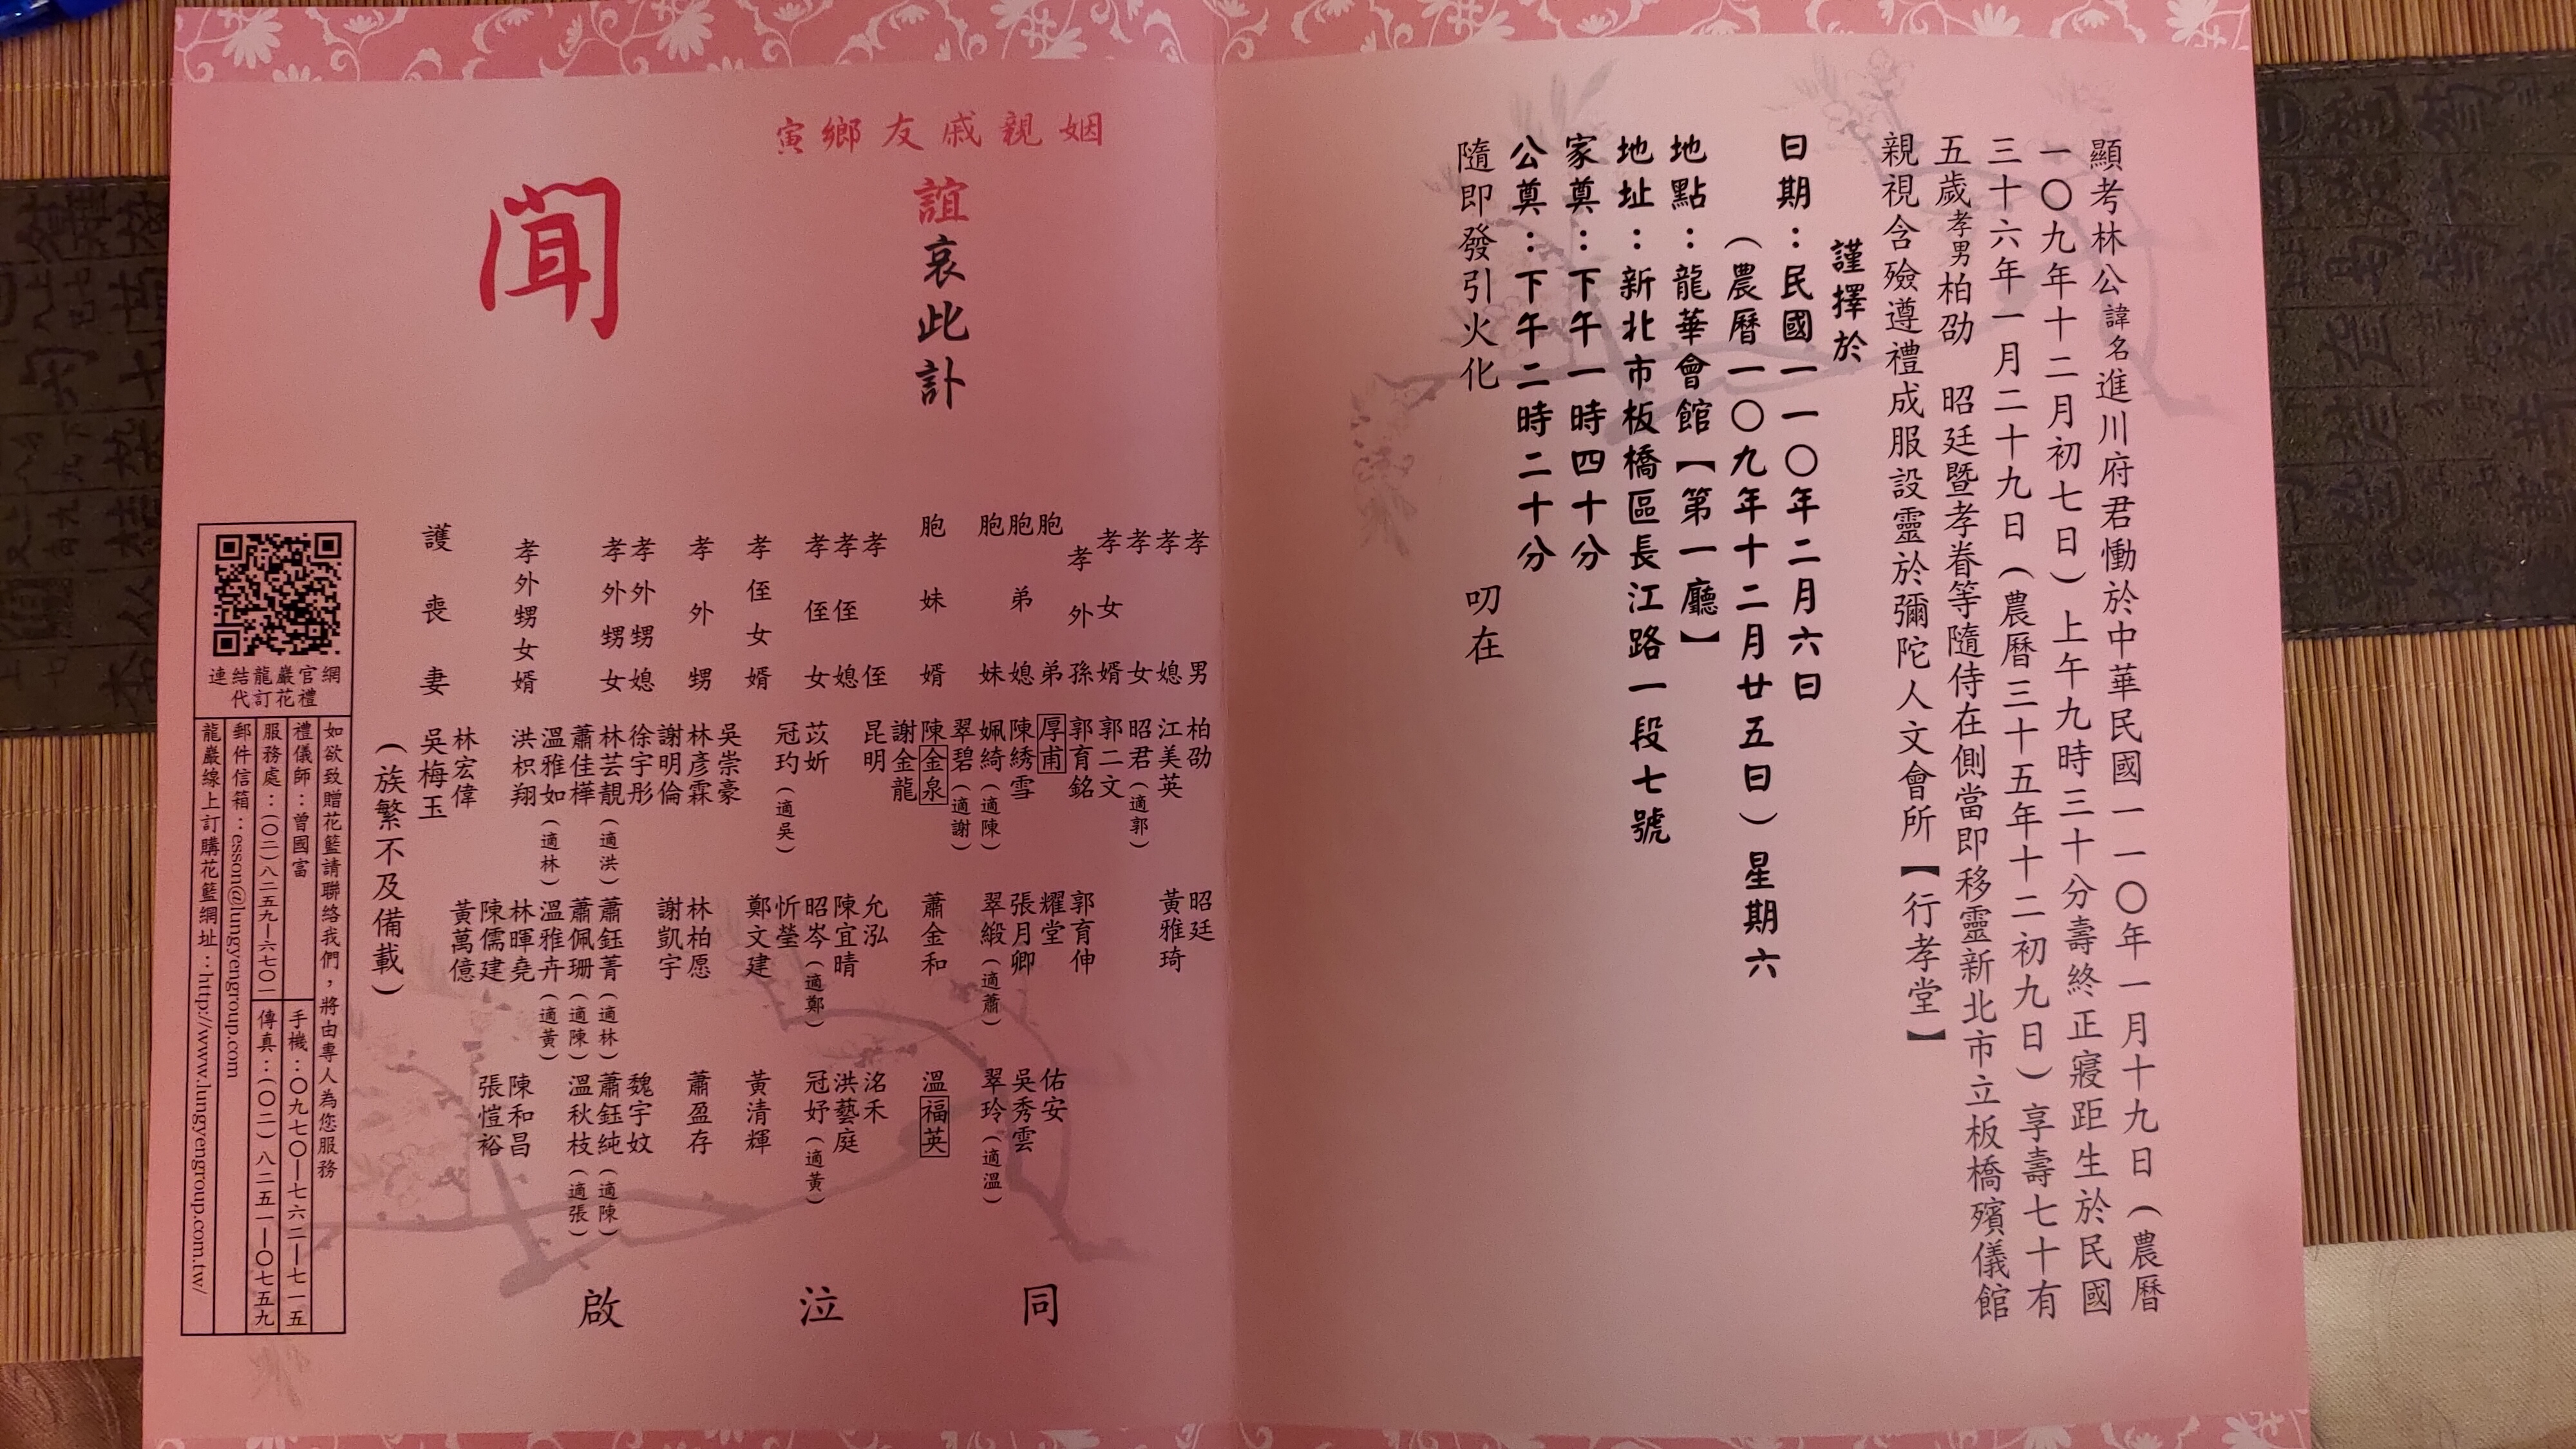 顯考林公諱名進川府君慟於中華民國一一〇年一月十九日（農曆
一〇九年十二月初七日）上午九時三十分壽終正寢距生於民國
三十六年一月二十九日（農曆三十五年十二初九日）享壽七十有
五歲孝男柏劭　昭廷暨孝眷等隨侍在側當即移靈新北市立板橋殯儀館
親視含殮遵禮成服設靈於彌陀人文會所【行孝堂】
謹擇於
日期：民國一一〇年二月六日
（農曆一〇九年十二月廿五日）星期六
地點：龍華會館【第一廳】
地址：新北市板橋區長江路一段七號
家奠：下午一時四十分
公奠：下午二時二十分
隨即發引火化　叨在
姻親戚友鄉寅
誼哀此訃
聞
孝男　柏劭　昭廷
孝媳　江美英　黃雅琦
孝女　昭君（適郭）
孝女婿　郭二文
孝外孫　郭育銘　郭育伸
胞弟　厚甫　耀堂　佑安
胞弟媳　陳綉雪　張月卿　吳秀雲
胞妹　姵綺（適陳）　翠緞（適蕭）　翠玲（適溫）
翠碧（適謝）
胞妹婿　陳金泉　蕭金和　溫福英
謝金龍
孝侄　昆明　允泓　洺禾
孝侄媳　陳宜晴　洪藝庭
孝侄女　苡妡　昭岑（適鄭）　冠妤（適黃）
冠玓（適吳）　忻瑩
孝侄女婿　鄭文建　黃清輝
吳崇豪
孝外甥　林彥霖　林柏愿　蕭盈存
謝明倫　謝凱宇
孝外甥媳　徐宇彤　魏宇妏
孝外甥女　林芸靚（適洪）　蕭鈺菁（適林）　蕭鈺純（適陳）
蕭佳樺　蕭佩珊（適陳）　溫秋枝（適張）
溫雅如（適林）　溫雅卉（適黃）
孝外甥女婿　洪枳翔　林暉堯　陳和昌
陳儒建　張愷裕
林宏偉　黃萬億
護喪妻　吳梅玉
（族繁不及備載）
同泣啟
連結龍巖官網
代訂花禮
如欲致贈花籃請聯絡我們，將由專人為您服務
禮儀師：曾國富
手機：〇九七〇—七六二—七一五
服務處：（〇二）八二五九—六七〇一
傳真：（〇二）八二五一—〇七五九
郵件信箱：esson@lungyengroup.com
龍巖線上訂購花籃網址：http://www.lungyengroup.com.tw/